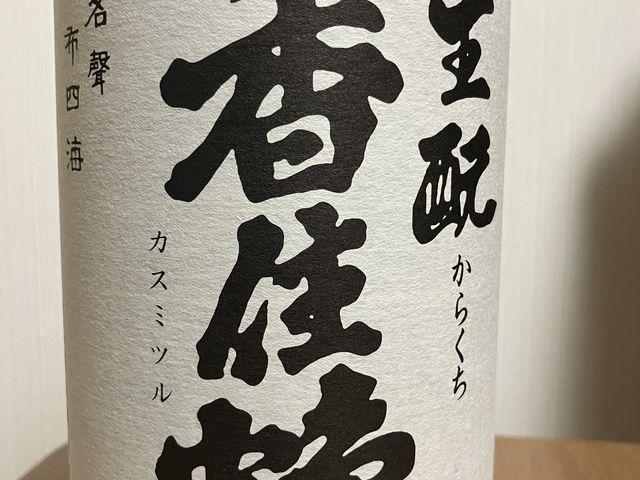 生酛
からくち
香住鶴
カスミツル
名聲
布四海